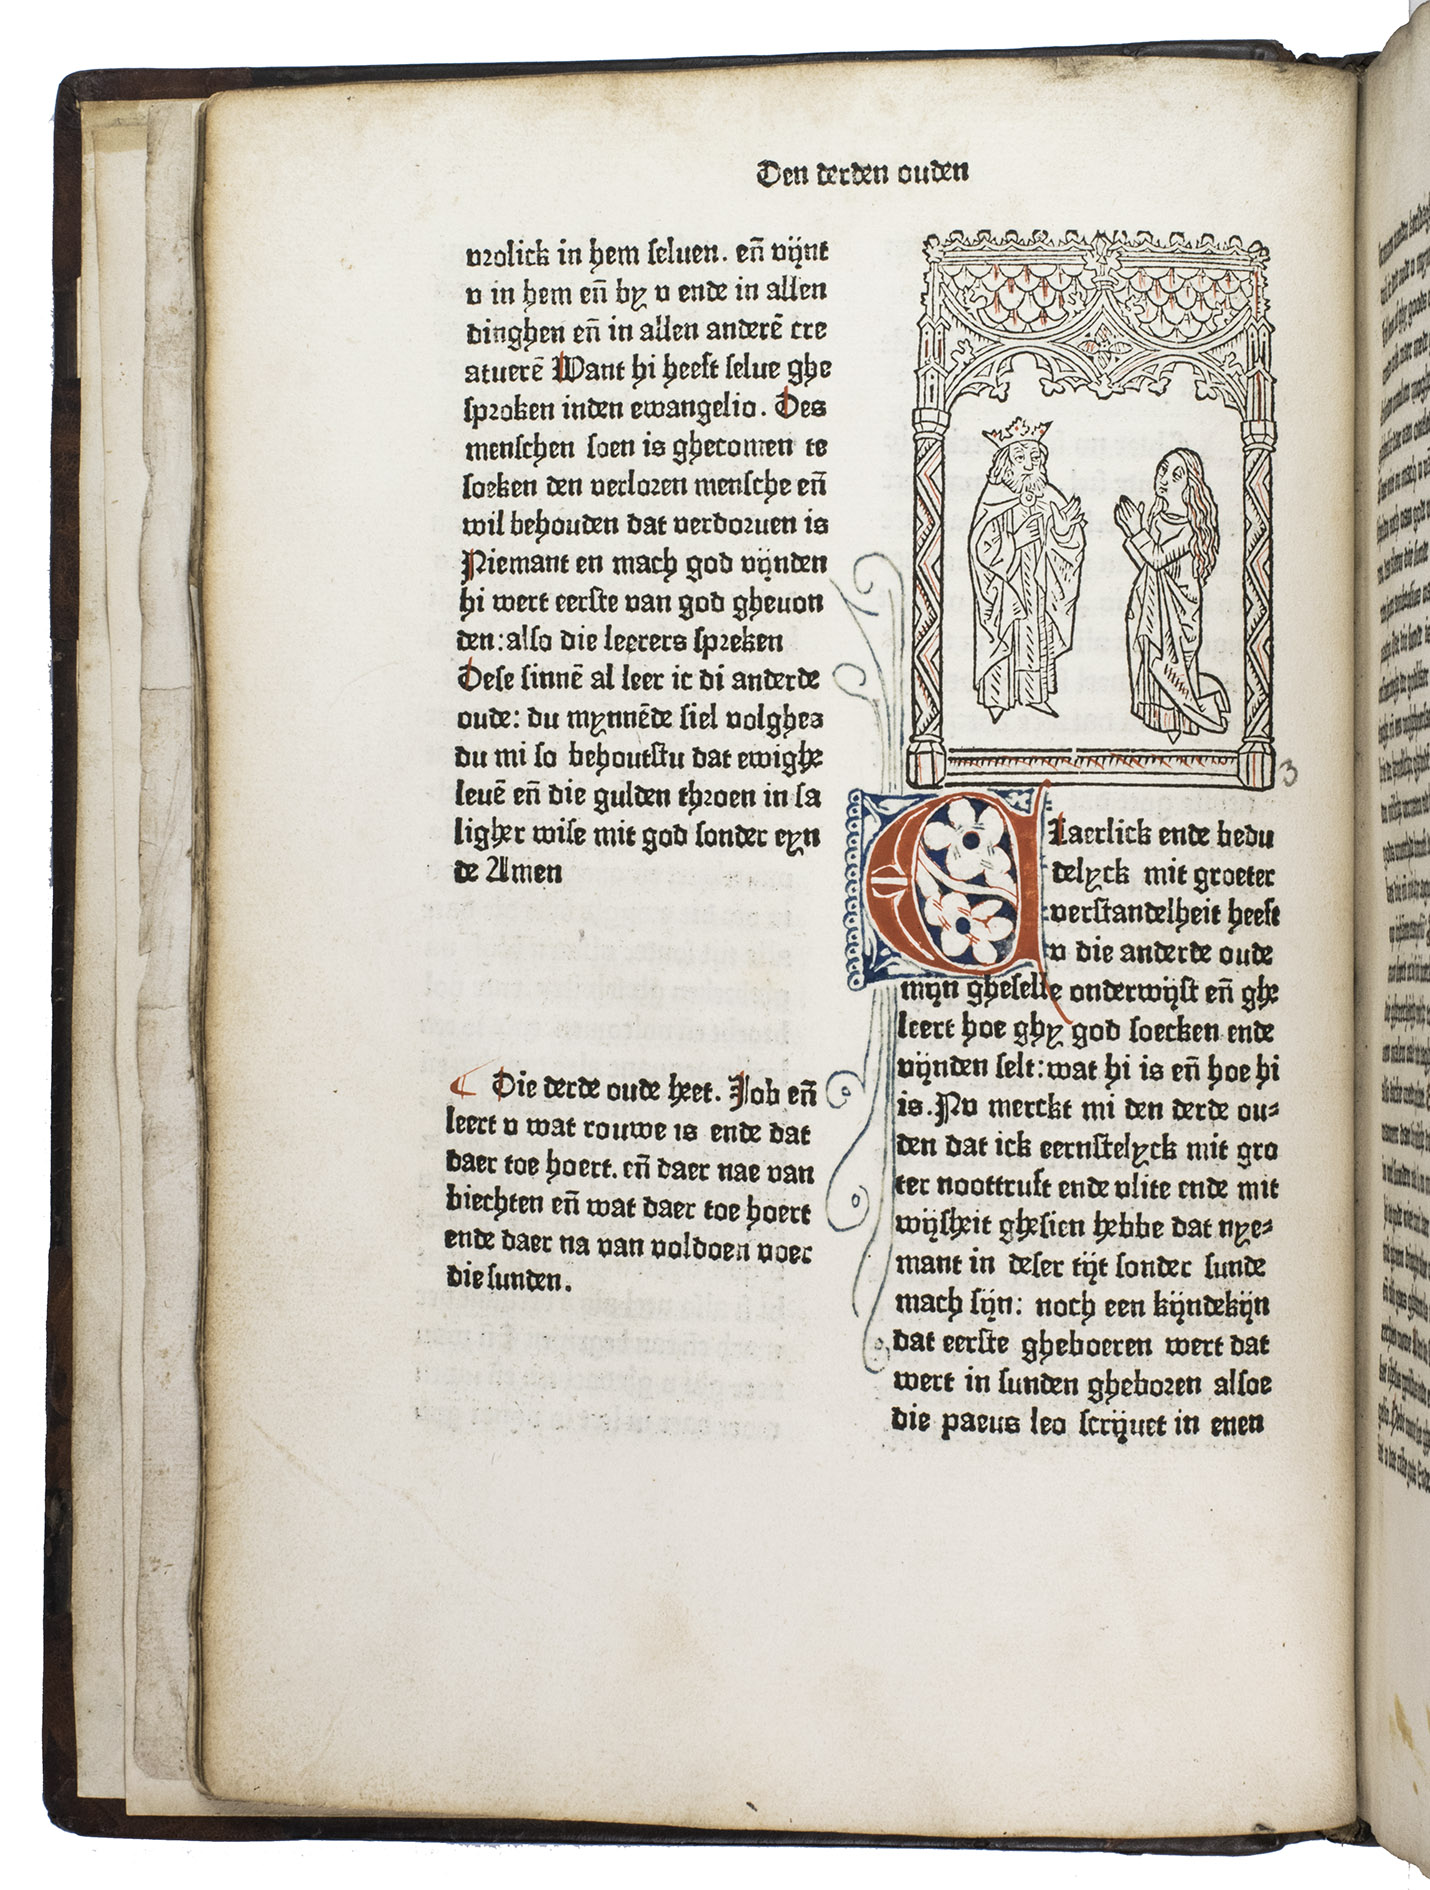 Den derden ouden
vrolick in hem seluen. en̄ vijnt
v in hem en̄ by v ende in allen
dinghen en̄ in allen anderē cre
atuerē Want hi heeft selue ghe
sproken inden ewangelio. Des
menschen soen is ghecomen te
soeken den verloren mensche en̄
wil behouden dat verdoruen is
Niemant en mach god vijnden
hi wert eerste van god gheuon
den: also die leerers spreken
Dese sinnē al leer ic di anderde
oude: du mynnēde siel volghes
du mi so behoutstu dat ewighe
leuē en̄ die gulden throen in sa
ligher wise mit god sonder eyn
de Amen
¶ Die derde oude heet. Job en̄
leert v wat rouwe is ende dat
daer toe hoert. en̄ daer nae van
biechten en̄ wat daer toe hoert
ende daer na van voldoen voer
die sunden.
3
Claerlick ende bedu
delyck mit groeter
verstandelheit heeft
v die anderde oude
mijn gheselle onderwijst en̄ ghe
leert hoe ghy god soecken ende
vijnden selt: wat hi is en̄ hoe hi
is. Nv merckt mi den derde ou⸗
den dat ick eernstelyck mit gro
ter noottruft ende vlite ende mit
wijsheit ghesien hebbe dat nye⸗
mant in deser tijt sonder sunde
mach sijn: noch een kijndekijn
dat eerste gheboeren wert dat
wert in sunden gheboren alsoe
die paeus leo scrijuet in enen